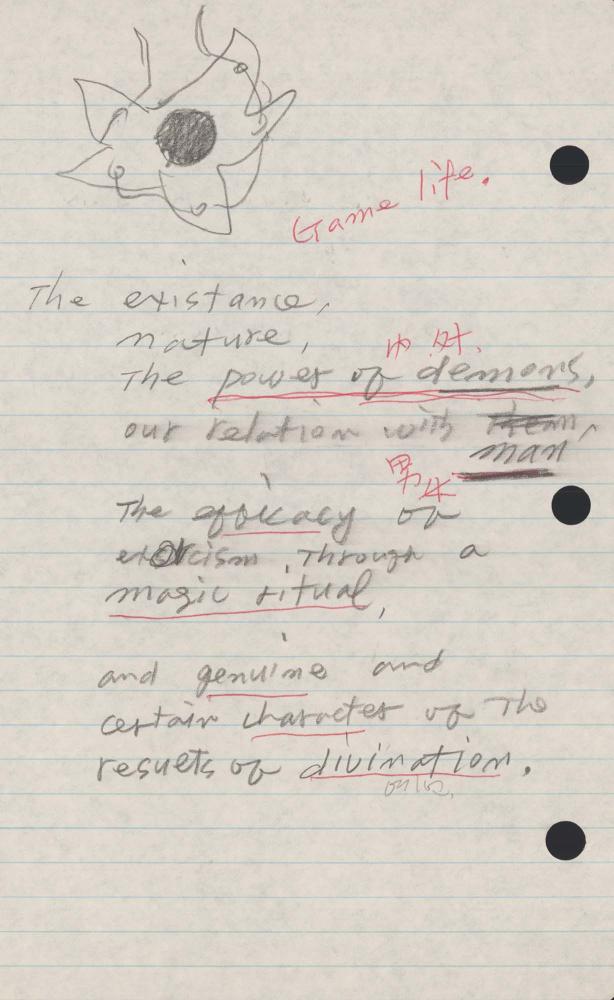 Game life.
The existance,
nature,
The power of demons,
our relation with them,
man
The efficacy of
exorcism, Through a
magic ritual,
and genuine and
certain character of The
results of divination.